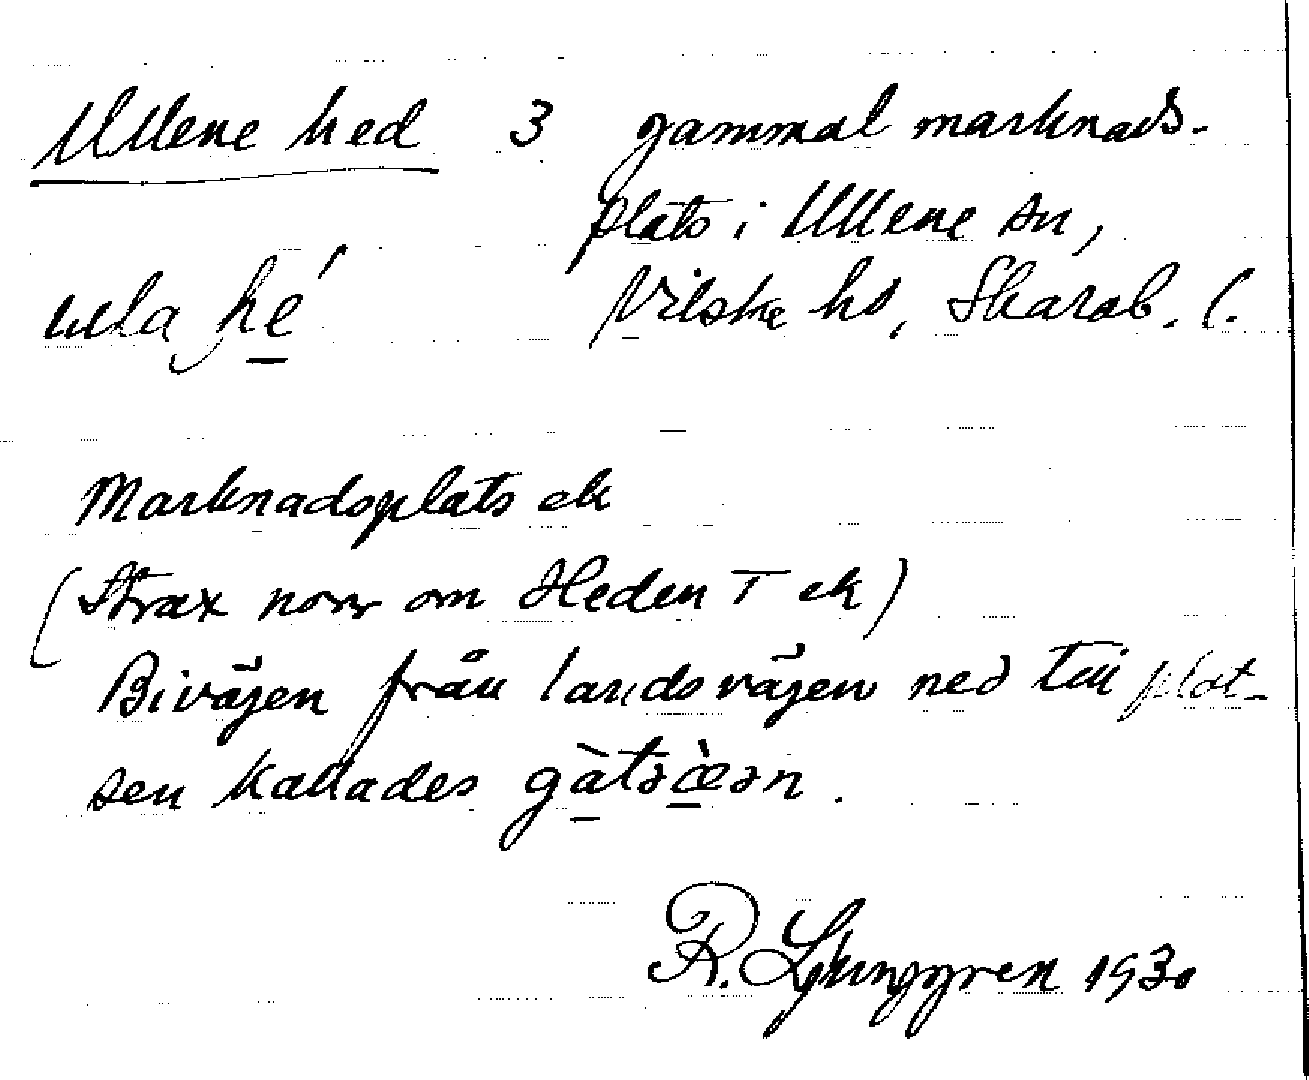 Ullene hed 3 gammal marknads-
plats i Ullene sn,
ula hé Vilske hd, Skarab. l.
Marknadsplats ek
(Strax norr om Heden T ek)
Bivägen från landsvägen ned till plat-
sen kallades gàtəæ̀ən.
R. Ljunggren 1930